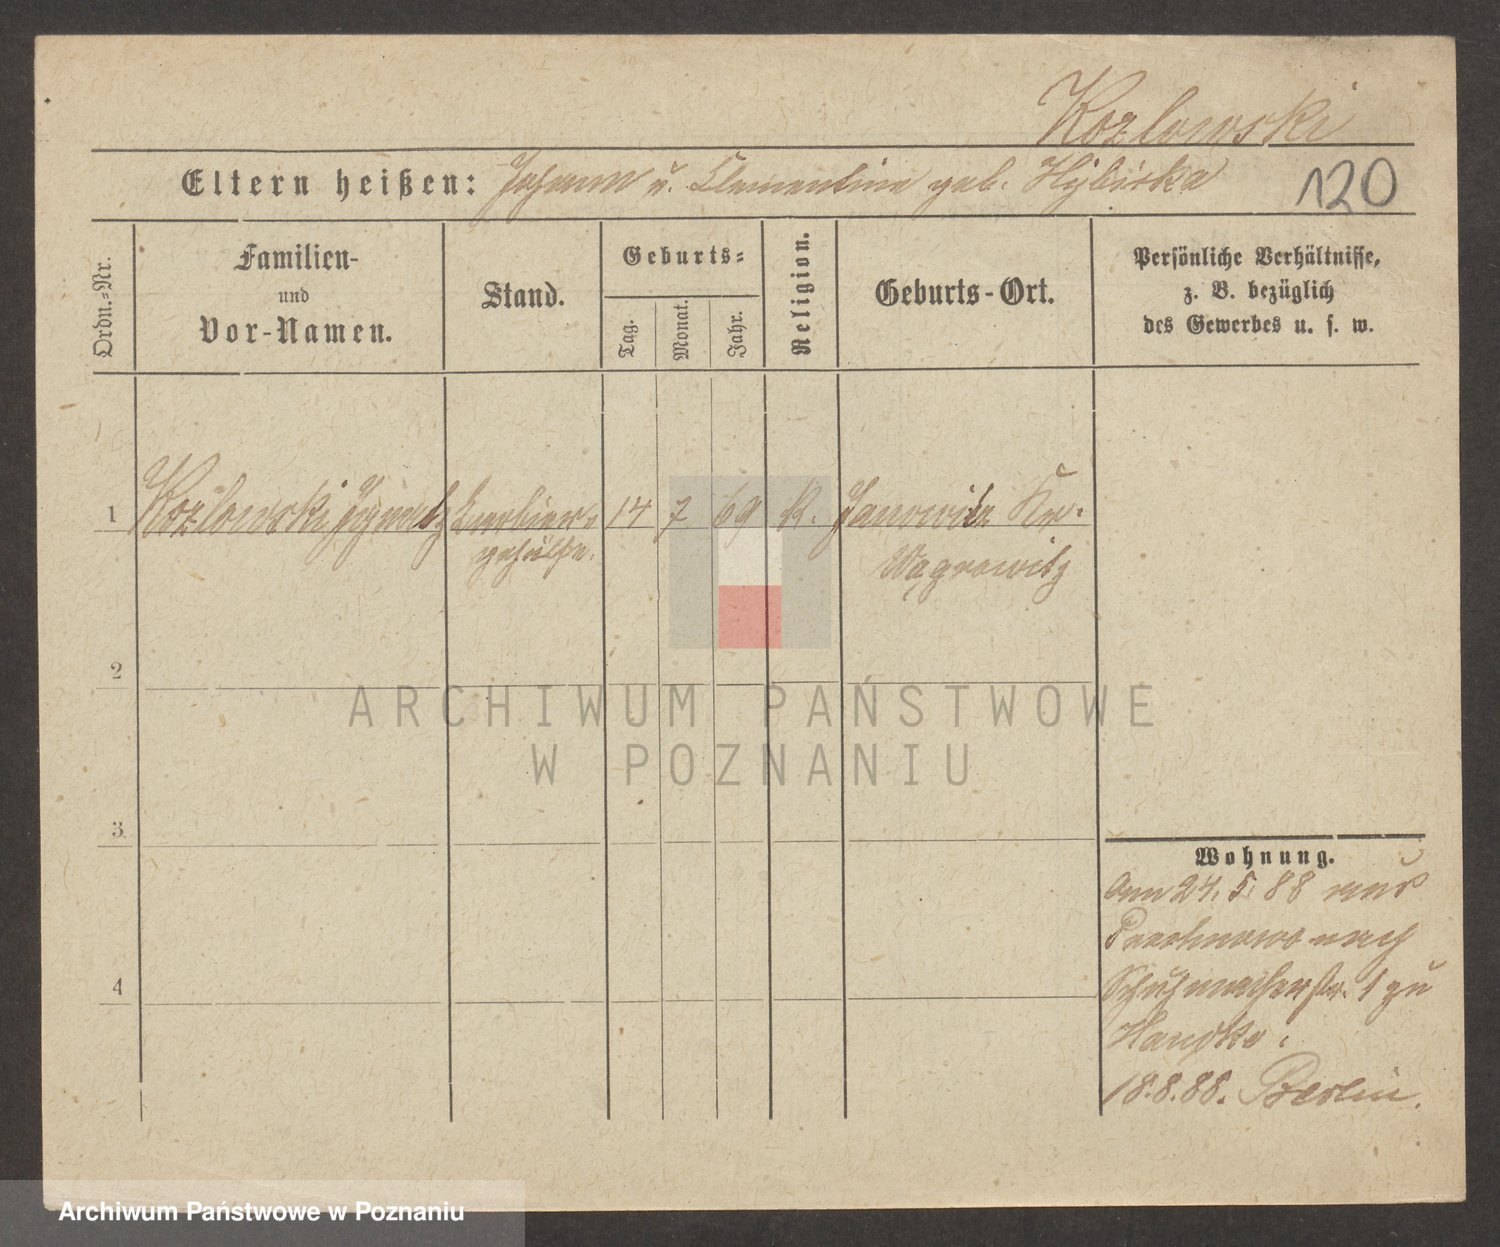 Kozlowski
Eltern heißen: Johann u. Clementine geb.
120
Ordn.-Nr.
Familien-
und
Vor-Namen.
Stand.
Geburts-
Tag.
Monat.
Jahr.
Religion.
Geburts-Ort.
Persönliche Verhältnisse,
z. B. bezüglich
des Gewerbes u. s. w.
1 Kozlowski Ignatz Barbier- 14 7 69 K. Janowitz Kr.
gehülfe. Wągrowitz
2
3
4
Wohnung.
24. 5. 88 aus
nach
Schuhmacherstr. 1 zu
Handke.
18.8.88. Berlin.
ARCHIWUM PAŃSTWOWE
W POZNANIU
Archiwum Państwowe w Poznaniu